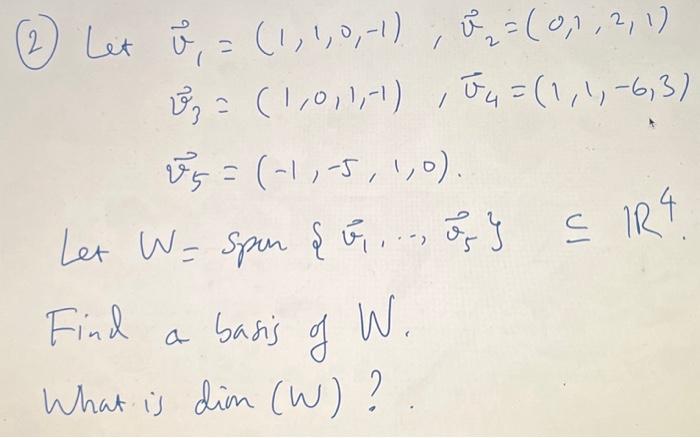 ② Let v⃗₁ = (1,1,0,-1) , v⃗₂ = (0,1,2,1)
v⃗₃ = (1,0,1,-1) , v⃗₄ = (1,1,-6,3)
v⃗₅ = (-1,-5,1,0).
Let W = span {v⃗₁, ..., v⃗₅} ⊆ ℝ⁴.
Find a basis of W.
What is dim (W) ?.